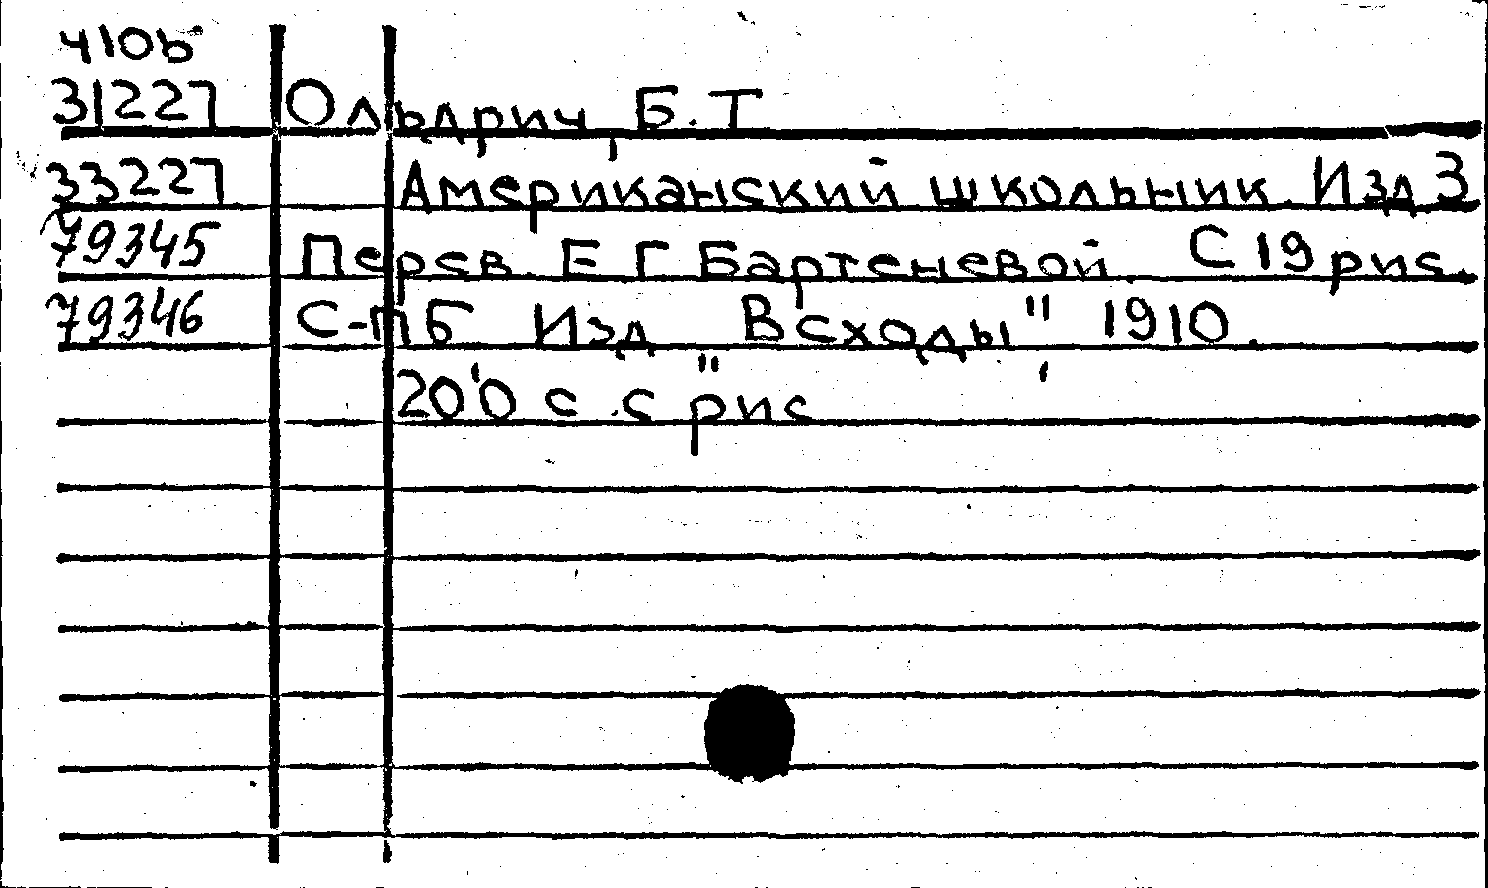 ч10b
31227 Ольдрич, Б. Т
33227 Американский школьник. Изд 3
79345 Перев. Е Г Бартеневой С 19 рис.
79346 С-ПБ Изд "Всходы", 1910.
200 с. с рис